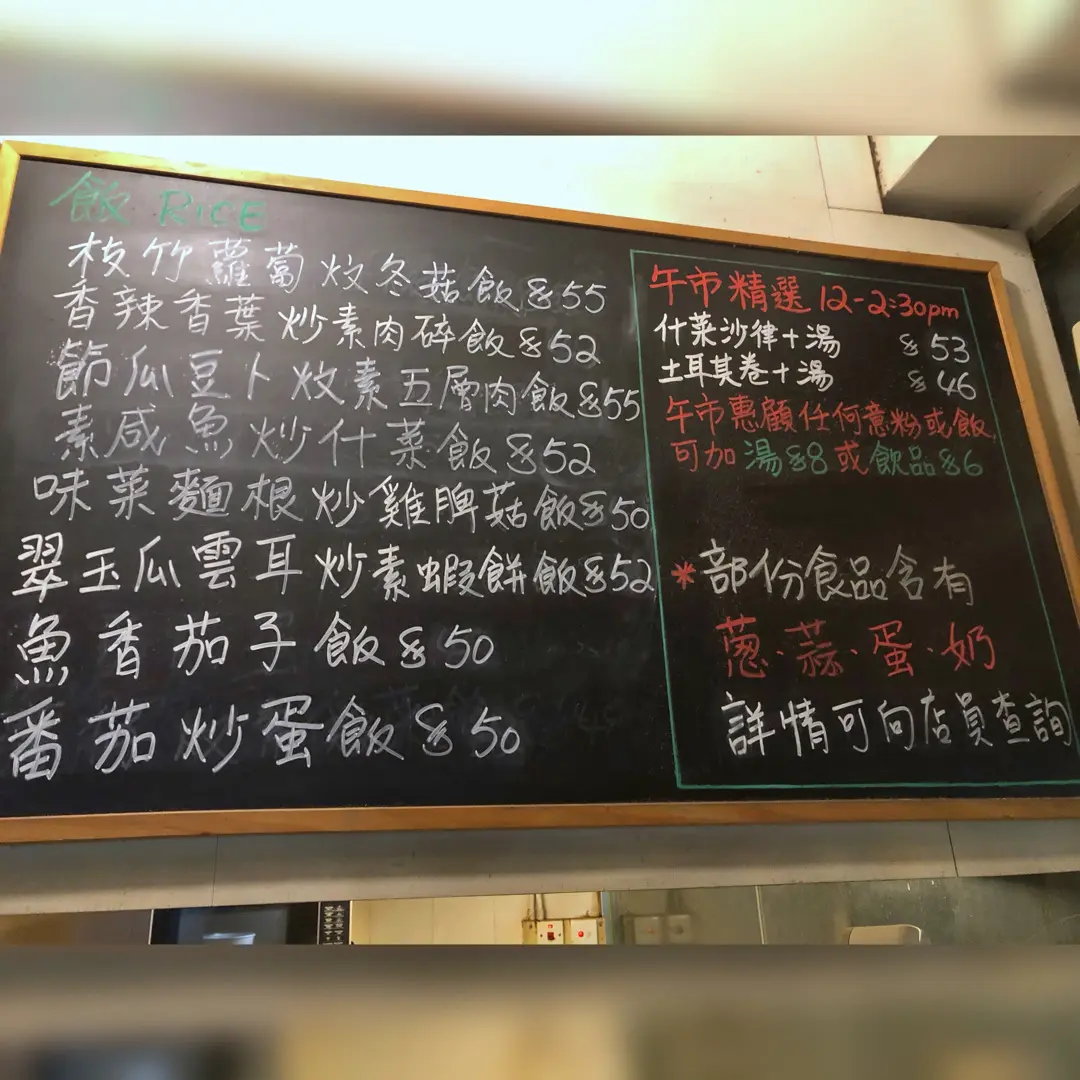 飯 RICE
枝竹蘿蔔炆冬菇飯 $55
香辣香葉炒素肉碎飯 $52
節瓜豆卜炆素五層肉飯 $55
素咸魚炒什菜飯 $52
味菜麵根炒雞脾菇飯 $50
翠玉瓜雲耳炒素蝦餅飯 $52
魚香茄子飯 $50
番茄炒蛋飯 $50
午市精選 12-2:30pm
什菜沙律+湯 $53
土耳其卷+湯 $46
午市惠顧任何意粉或飯,
可加湯$8或飲品$6
*部份食品含有
蔥·蒜·蛋·奶
詳情可向店員查詢